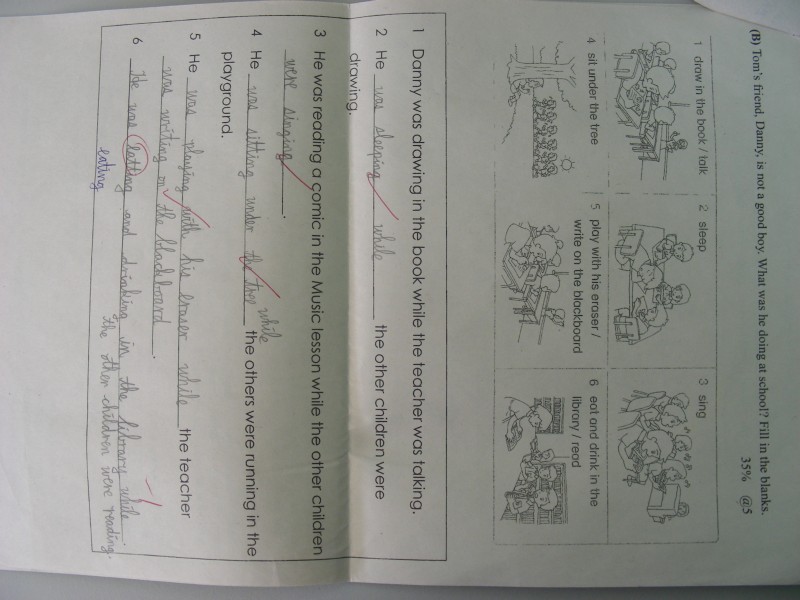 (B) Tom's friend, Danny, is not a good boy. What was he doing at school? Fill in the blanks.
35% @5
1 draw in the book / talk
2 sleep
3 sing
4 sit under the tree
5 play with his eraser /
write on the blackboard
6 eat and drink in the
library / read
1 Danny was drawing in the book while the teacher was talking.
2 He was sleeping while the other children were
drawing.
3 He was reading a comic in the Music lesson while the other children
were singing.
4 He was sitting under the tree while the others were running in the
playground.
5 He was playing with his eraser while the teacher
was writing on the blackboard.
6 He was latting and drinking in the library while
the other children were reading.
eating
-1